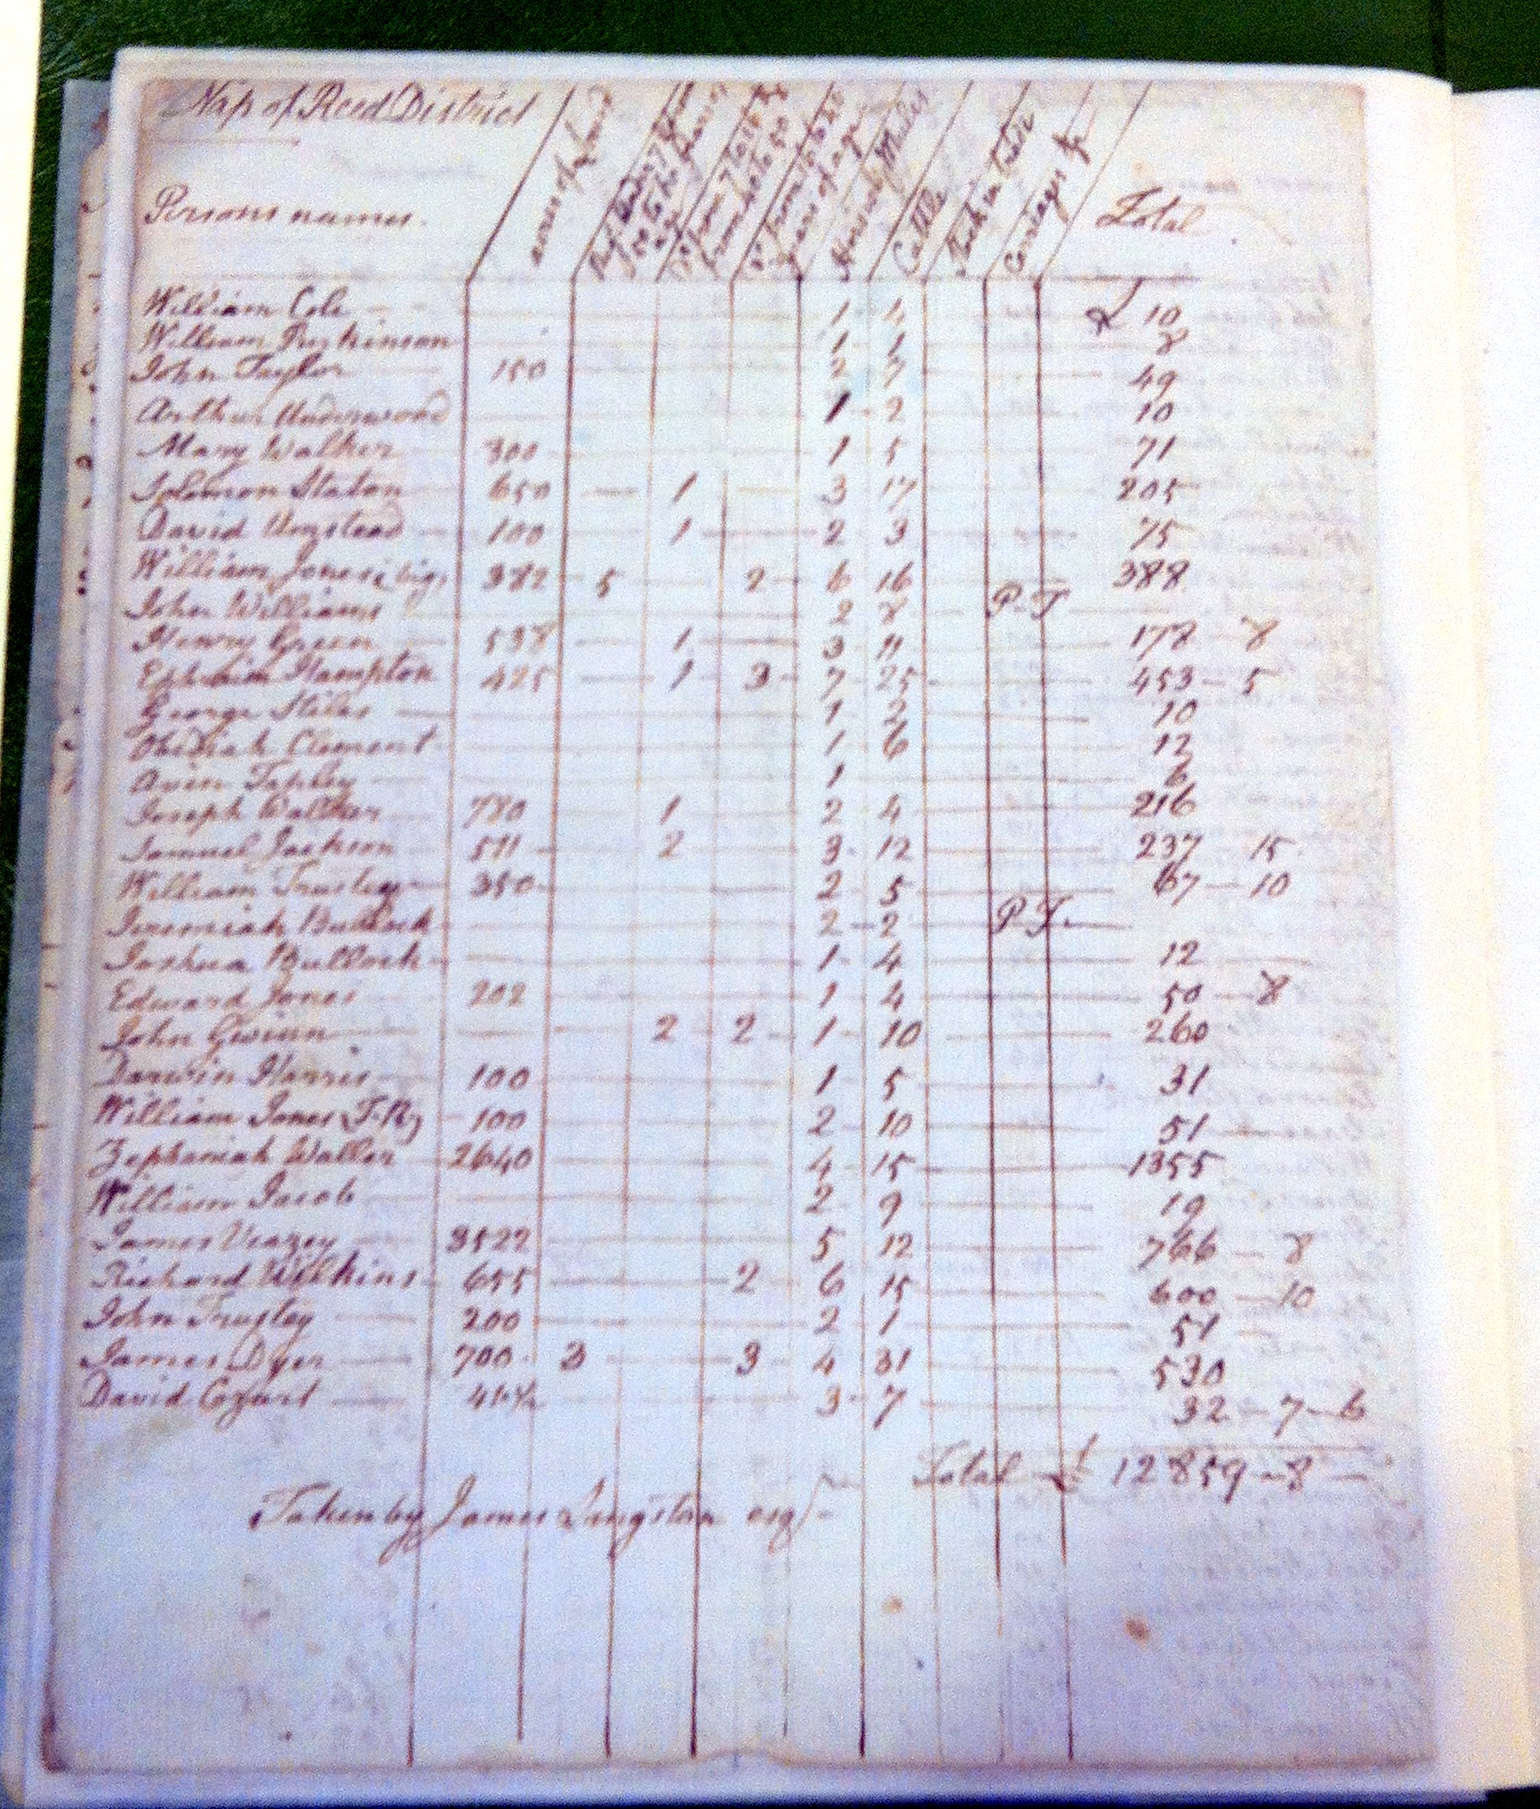 Nap of Reed District
Persons names. acres of land Cattle Carriages Total
William Cole 1 4 £ 10
William Parkinson 1 1 8
John Taylor 150 2 7 49
Arthur Underwood 1 2 10
Mary Walker 300 1 5 71
Solomon Staton 650 1 3 17 205
David Umstead 100 1 2 3 75
William Jones 382 5 2 6 16 388
John Williams 2 8 P. T
Henry Green 538 1 3 11 178 8
Ephraim Hampton 425 1 3 7 25 453 5
George Stiles 1 2 10
Obediah Clement 1 6 12
Tapley 1 6
Joseph Walker 780 1 2 4 216
Samuel Jackson 511 2 3 12 237 15
William 350 2 5 67 10
Jeremiah Bullock 2 2 P. T.
Joshua Bullock 1 4 12
Edward Jones 202 1 4 50 8
John Gwinn 2 2 1 10 260
Harris 100 1 5 31
William Jones 100 2 10 51
Zephaniah Waller 2640 4 15 1355
William Jacob 2 9 19
James Veazey 3522 5 12 766 8
Richard Wilkins 655 2 6 15 600 10
John 200 2 1 51
James Dyer 700 3 3 4 31 530
David Cozart 3 7 32 7 6
Total £ 12859 - 8
Taken by James Langston esqr